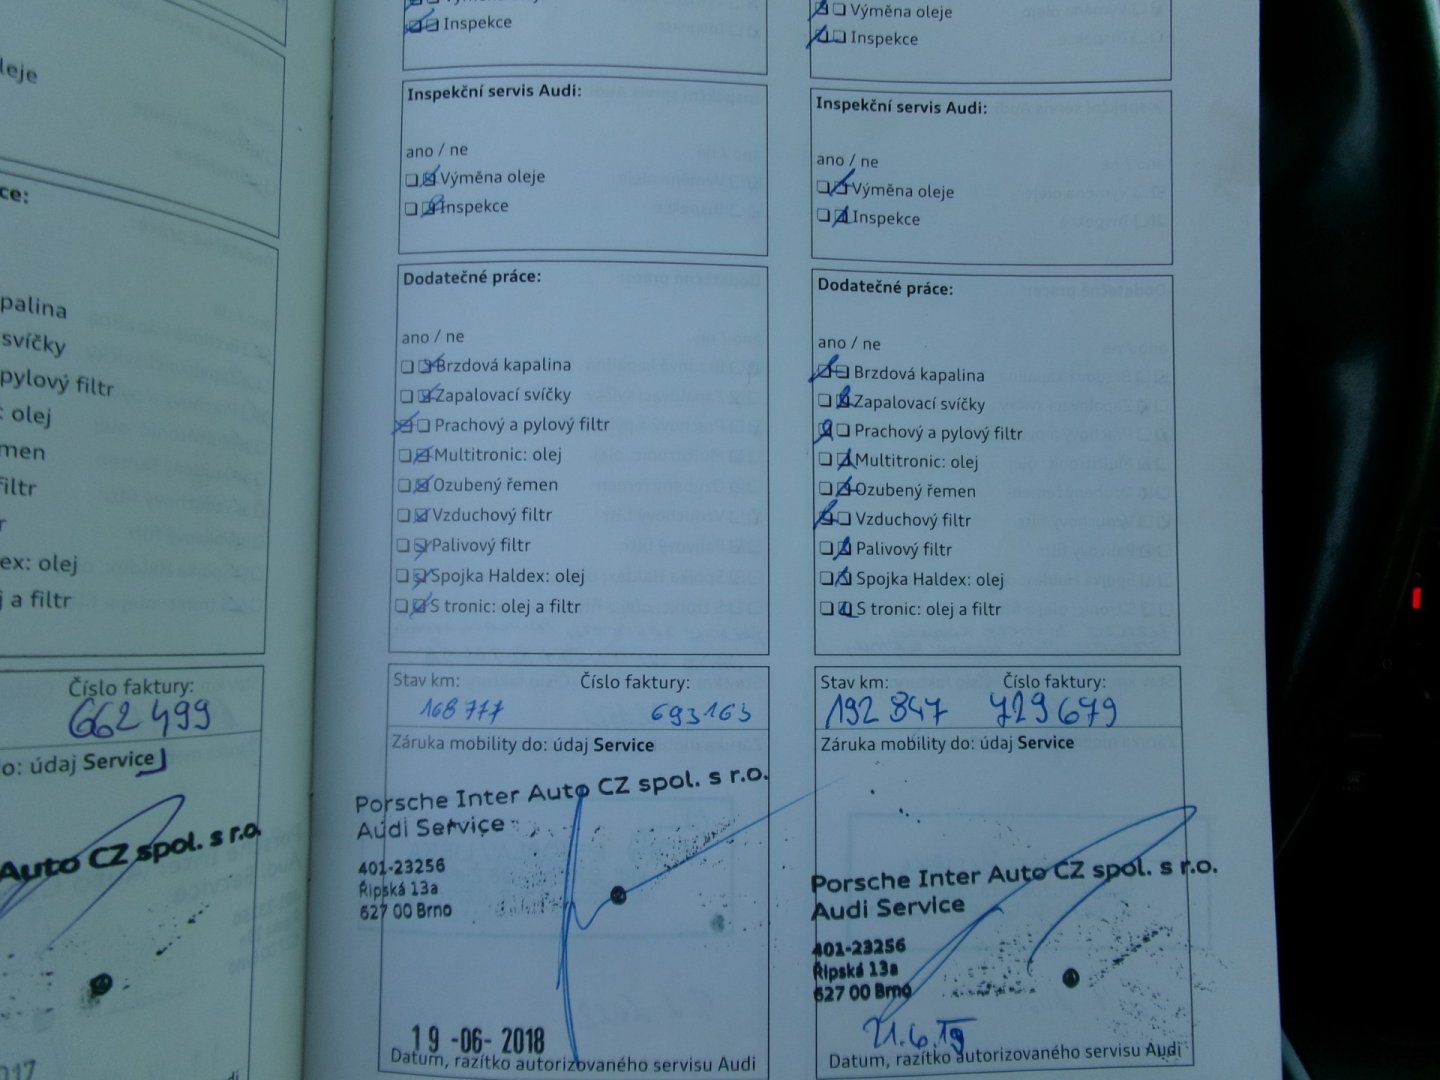 leje
ce:
palina
svíčky
pylový filtr
: olej
men
filtr
r
ex: olej
j a filtr
Číslo faktury:
662 499
o: údaj Service
Auto CZ spol. s r.o.
017
Inspekce
Inspekční servis Audi:
ano / ne
Výměna oleje
Inspekce
Dodatečné práce:
ano / ne
Brzdová kapalina
Zapalovací svíčky
Prachový a pylový filtr
Multitronic: olej
Ozubený řemen
Vzduchový filtr
Palivový filtr
Spojka Haldex: olej
S tronic: olej a filtr
Stav km: Číslo faktury:
168 777 693163
Záruka mobility do: údaj Service
Porsche Inter Auto CZ spol. s r.o.
Audi Service
401-23256
Řipská 13a
627 00 Brno
19 -06- 2018
Datum, razítko autorizovaného servisu Audi
Výměna oleje
Inspekce
Inspekční servis Audi:
ano / ne
Výměna oleje
Inspekce
Dodatečné práce:
ano / ne
Brzdová kapalina
Zapalovací svíčky
Prachový a pylový filtr
Multitronic: olej
Ozubený řemen
Vzduchový filtr
Palivový filtr
Spojka Haldex: olej
S tronic: olej a filtr
Stav km: Číslo faktury:
192 847 729 679
Záruka mobility do: údaj Service
Porsche Inter Auto CZ spol. s r.o.
Audi Service
401-23256
Řipská 13a
627 00 Brno
21.6.19
Datum, razítko autorizovaného servisu Audi